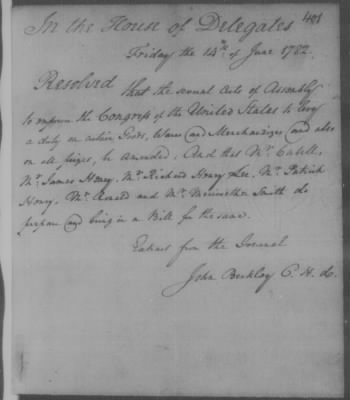 In the House of Delegates 481
Friday the 14th of June 1782.
Resolved that the several Acts of Assembly
to impower the Congress of the United States to levy
a duty on certain Goods, Wares and Merchandizes and also
on all prizes, be Amended; And that Mr. Cabell,
Mr. James Henry, Mr. Richard Henry Lee, Mr. Patrick
Henry, Mr. Ronald and Mr. Meriwether Smith do
prepare and bring in a Bill for the same.
Extract from the Journal
John Beckley C. H. d.